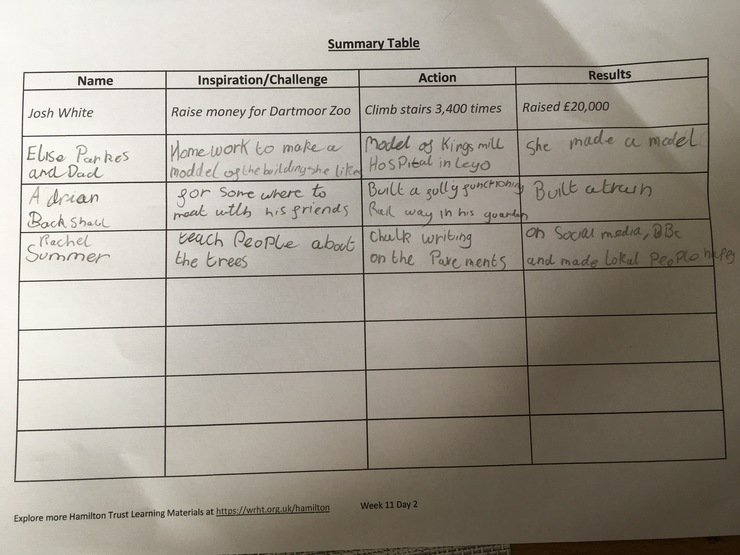 Summary Table
Name Inspiration/Challenge Action Results
Josh White Raise money for Dartmoor Zoo Climb stairs 3,400 times Raised £20,000
Elise Parkes Home work to make a Model of Kings mill She made a model
and Dad moddel of the building she likes HosPital in Lego
Adrian for Some where to Built a fully functioning Built a train
Back Shall meat with his friends Rail way in his guarden
Rachel teach PeoPle about Chalk writing on Social media, BBc
Summer the trees on the Pavements and made Lokal PeoPle happy
Explore more Hamilton Trust Learning Materials at https://wrht.org.uk/hamilton Week 11 Day 2